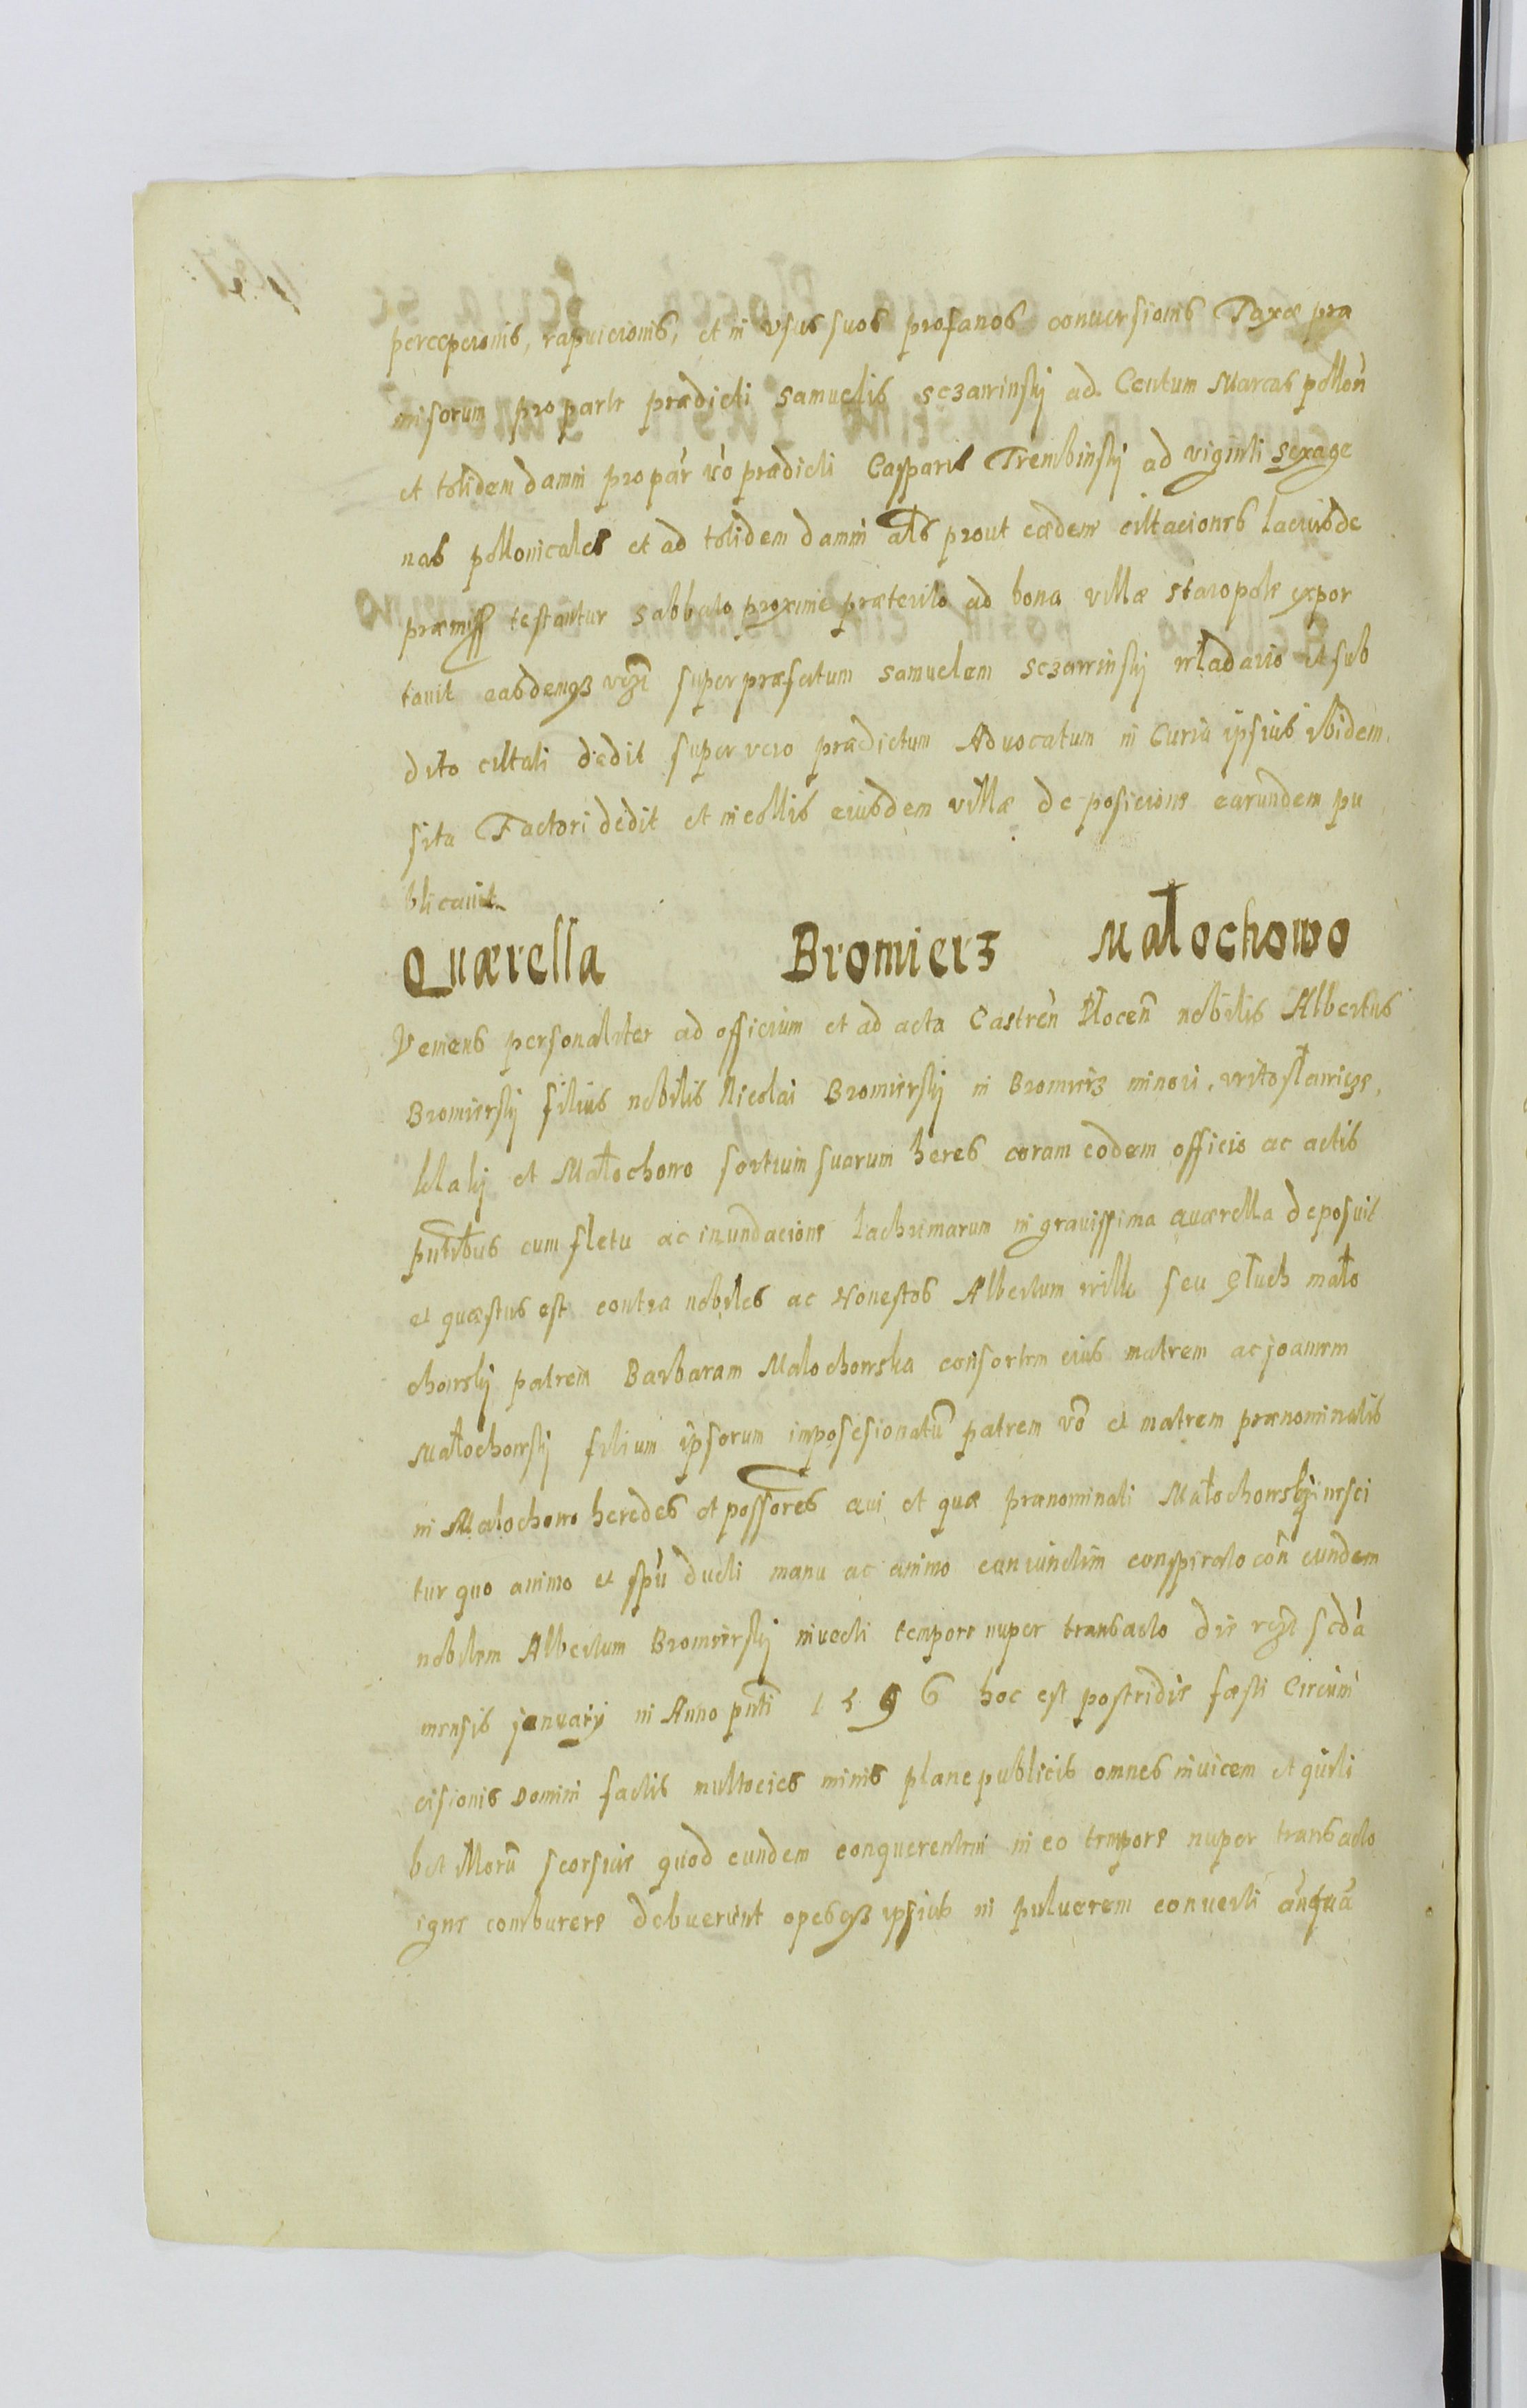 percepcionis, rapuicionis, et in usus suos profanos conuersionis Taxæ præ
misorum pro parte prædicti Samuelis Sczawinskij ad Centum Marcas pollon̄
et totidem damni pro par̄ v̄o prædicti Casparis Trembinskij ad viginti sexage
nas pollonicales et ad totidem damni al̄s prout eædem cittaciones lacius de
præmiss testantur sabbato proxime præterito ad bona villæ Staropole expor
tauit easdemq3 super præfatum Samuelem Sczawinskij włodario et sub
dito cittati dedit super vero prædictum Aduocatum in Curia ipsius ibidem
sita Factori dedit et incollis eiusdem villæ de posicione earundem pu
blicauit
Quærella Bromierz Małochowo
Veniens personaliter ad officium et ad acta Castren̄ Płocen̄ nobilis Albertus
Bromierskij filius nobilis Nicolai Bromierskij in Bromierz minori,
et Małochowo sortium suarum heres coram eodem officio ac actis
pn̄tibus cum fletu ac inundacione lachrimarum in grauissima quærella deposuit
et quæstus est contra nobiles ac Honestos Albertum wilk seu Głuch mało
chowskij patrem Barbaram Małochowska consortem eius matrem ac joannem
Małochowskij filium ipsorum imposesionatū patrem v̄o et matrem prænominatis
in Małochowo heredes et possores qui et quæ prænominati Małochowskij nesci
tur quo animo et sp̄u ducti manu ac animo coniunctim conspirato con̄ eundem
nobilem Albertum Bromierskij inuecti tempore nuper transacto die scd̄a
mensis januarij in Anno pn̄ti 1596 hoc est postridie fæsti Circum
cisionis Domini factis multocies minis plane publicis omnes inuicem et quili
bet illorū seorsiue quod eundem conquerentem in eo tempore nuper transacto
igne comburere debuerint opesq3 ipsius in puluerem conuerti